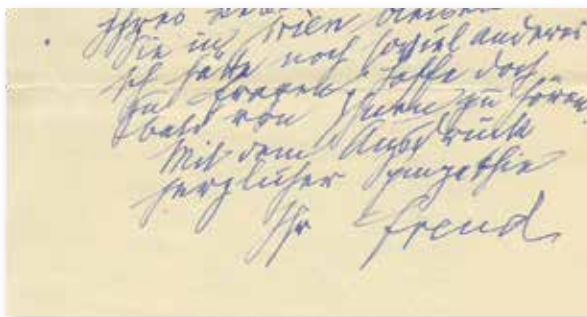 Ihres
Sie in Wien bleiben
ich hätte noch soviel anderes
zu fragen, hoffe doch
bald von Ihnen zu hören
Mit dem Ausdruck
herzlicher Sympathie
Ihr Freud